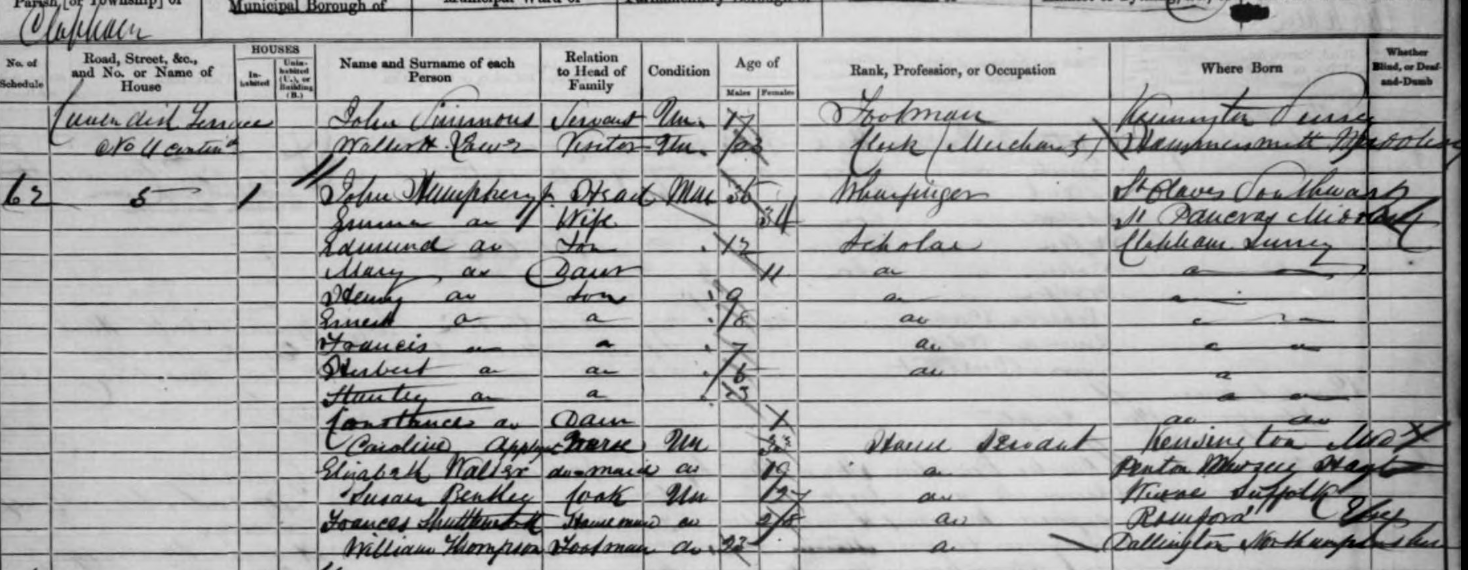 Parish [or Township] of Municipal Borough of
Clapham
No. of Schedule Road, Street, &c., and No. or Name of House HOUSES Inhabited Uninhabited (U.), or Building (B.) Name and Surname of each Person Relation to Head of Family Condition Age of Males Females Rank, Profession, or Occupation Where Born Whether Blind, or Deaf-and-Dumb
Cavendish Terrace John Simmons Servant Un. 17 Footman Surrey
No 4 contind Walter H. Visitor Un. 23 Clerk (Merchant) Hammersmith
62 5 1 John Humphery Head Mar 36 Wharfinger St Olaves Southwark
Emma do Wife 34 St Pancras
Edmund do Son 12 Scholar Clapham Surrey
Mary do Daur 11 do do
Henry do Son 9 do do
Ernest do do 8 do do do
Francis do do 7 do do do
Herbert do do 6 do do
Stanley do do 3 do do
Constance do Daur 1 do do
Caroline Nurse Un 33 House Servant Kensington
Elizabeth Walter do-maid do 19 do Penton
Susan Cook Un do Suffolk
Frances Housemaid do 28 do Romford Essex
William Thompson Footman do 23 do Dallington Northamptonshire